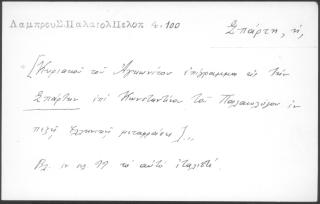 ΛαμπρουΣ.ΠαλαιολΠελοπ 4.100
Σπάρτη, ἡ,
[Κυριακοῦ τοῦ Ἀγκωνίτου ἐπίγραμμα εἰς τὴν
Σπάρτην ἐπὶ Κωνσταντίνου τοῦ Παλαιολόγου ἐν
πεζῇ ἑλληνικῇ μεταφράσει].,
Βλ. ἐν σελ. 99 τὸ αὐτὸ ἰταλιστί.